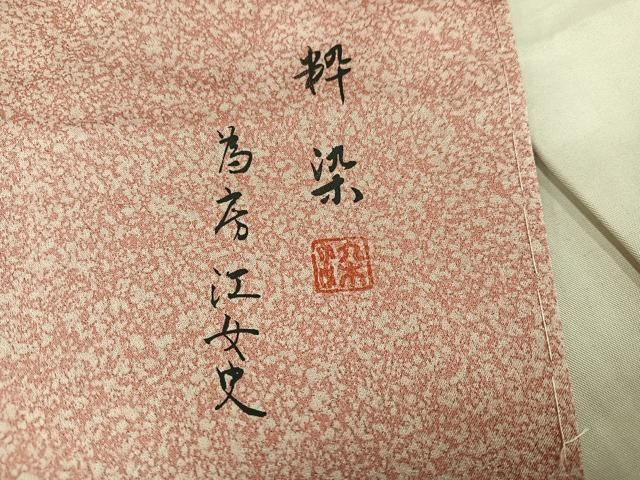 粋染
染
為房江女史